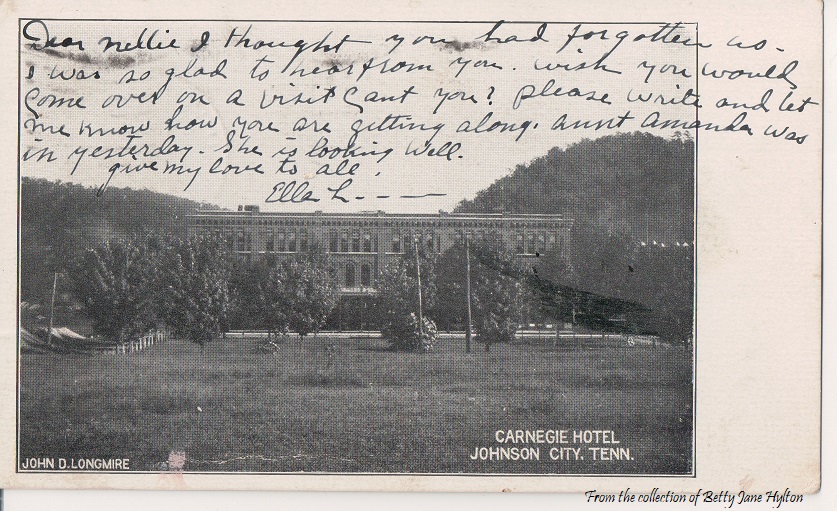 Dear Nellie I thought you had forgotten us-
I was so glad to hear from you. wish you would
Come over on a visit Cant you? please write and let
me know how you are getting along. aunt Amanda was
in yesterday. She is looking well.
give my love to all,
Ella L----
CARNEGIE HOTEL
JOHNSON CITY, TENN.
JOHN D. LONGMIRE
From the collection of Betty Jane Hylton